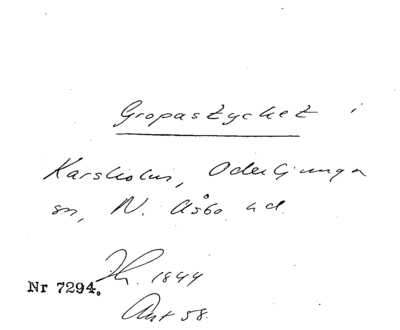 Gropastycket i
Karsholm, Oderljunga
sn, N. Åsbo hd.
Jh. 1844
Nr 7294.
Akt 58.